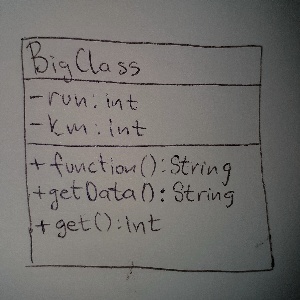 BigClass
-run: int
-km: int
+ function(): String
+getData(): String
+ get(): Int